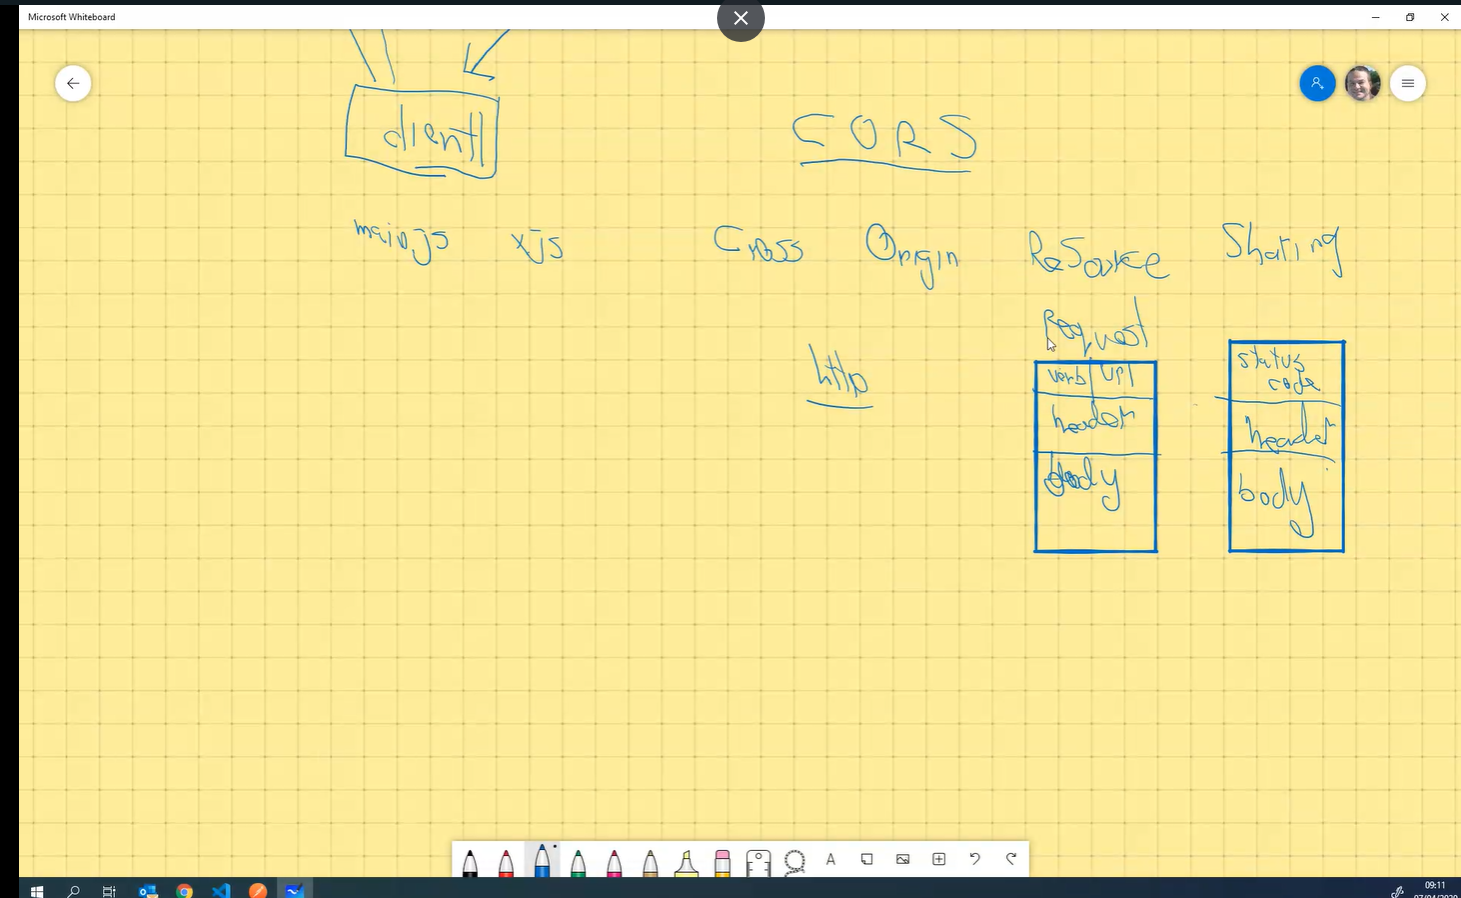 Microsoft Whiteboard
client
CORS
main.js xjs Cross Origin ReSource Sharing
http
Request
verb url
header
body
status
code
header
body
A
09:11